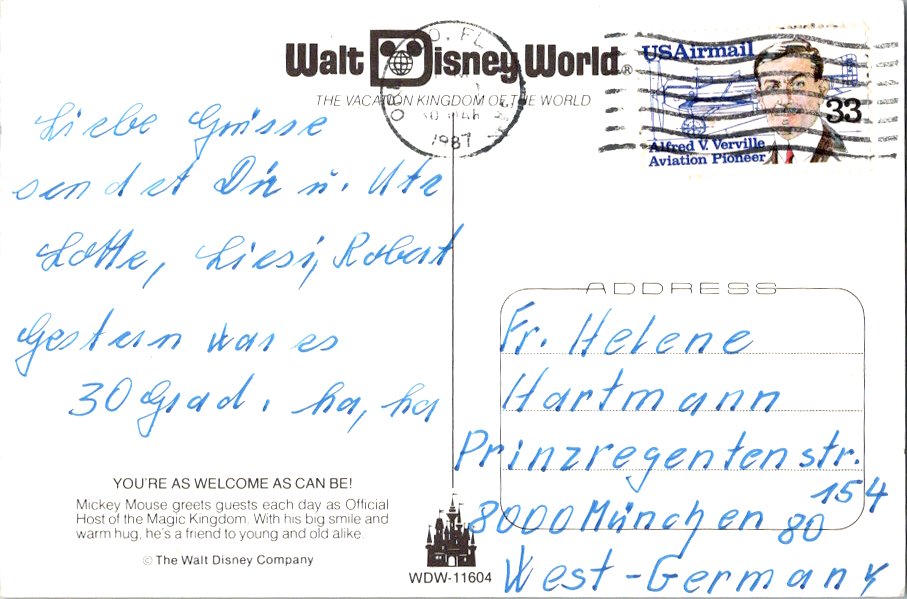 Walt Disney World®
THE VACATION KINGDOM OF THE WORLD
O, FL
1987
USAirmail
33
Alfred V. Verville
Aviation Pioneer
Liebe Grüsse
sendet Dir u. Ute
Lotte, Liesi, Robert
Gestern war es
30 Grad. ha, ha
YOU'RE AS WELCOME AS CAN BE!
Mickey Mouse greets guests each day as Official
Host of the Magic Kingdom. With his big smile and
warm hug, he's a friend to young and old alike.
© The Walt Disney Company
WDW-11604
ADDRESS
Fr. Helene
Hartmann
Prinzregentenstr.
154
8000 München 80
West-Germany